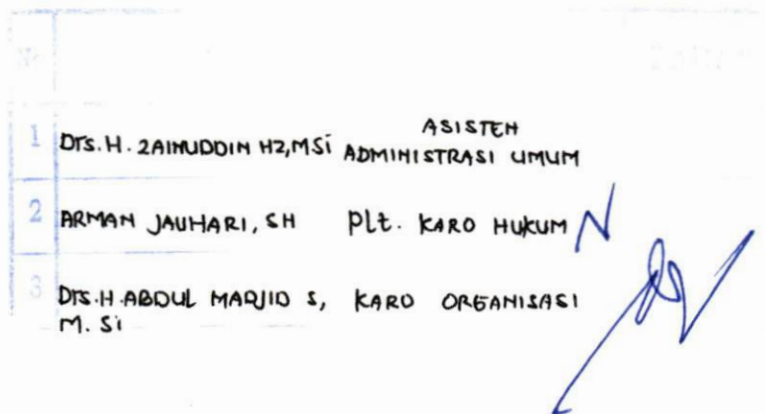 No
1 Drs. H. ZAINUDDIN HZ, MSi ASISTEN ADMINISTRASI UMUM
2 ARMAN JAUHARI, SH Plt. KARO HUKUM
3 Drs. H. ABDUL MADJID S, KARO ORGANISASI
M. Si